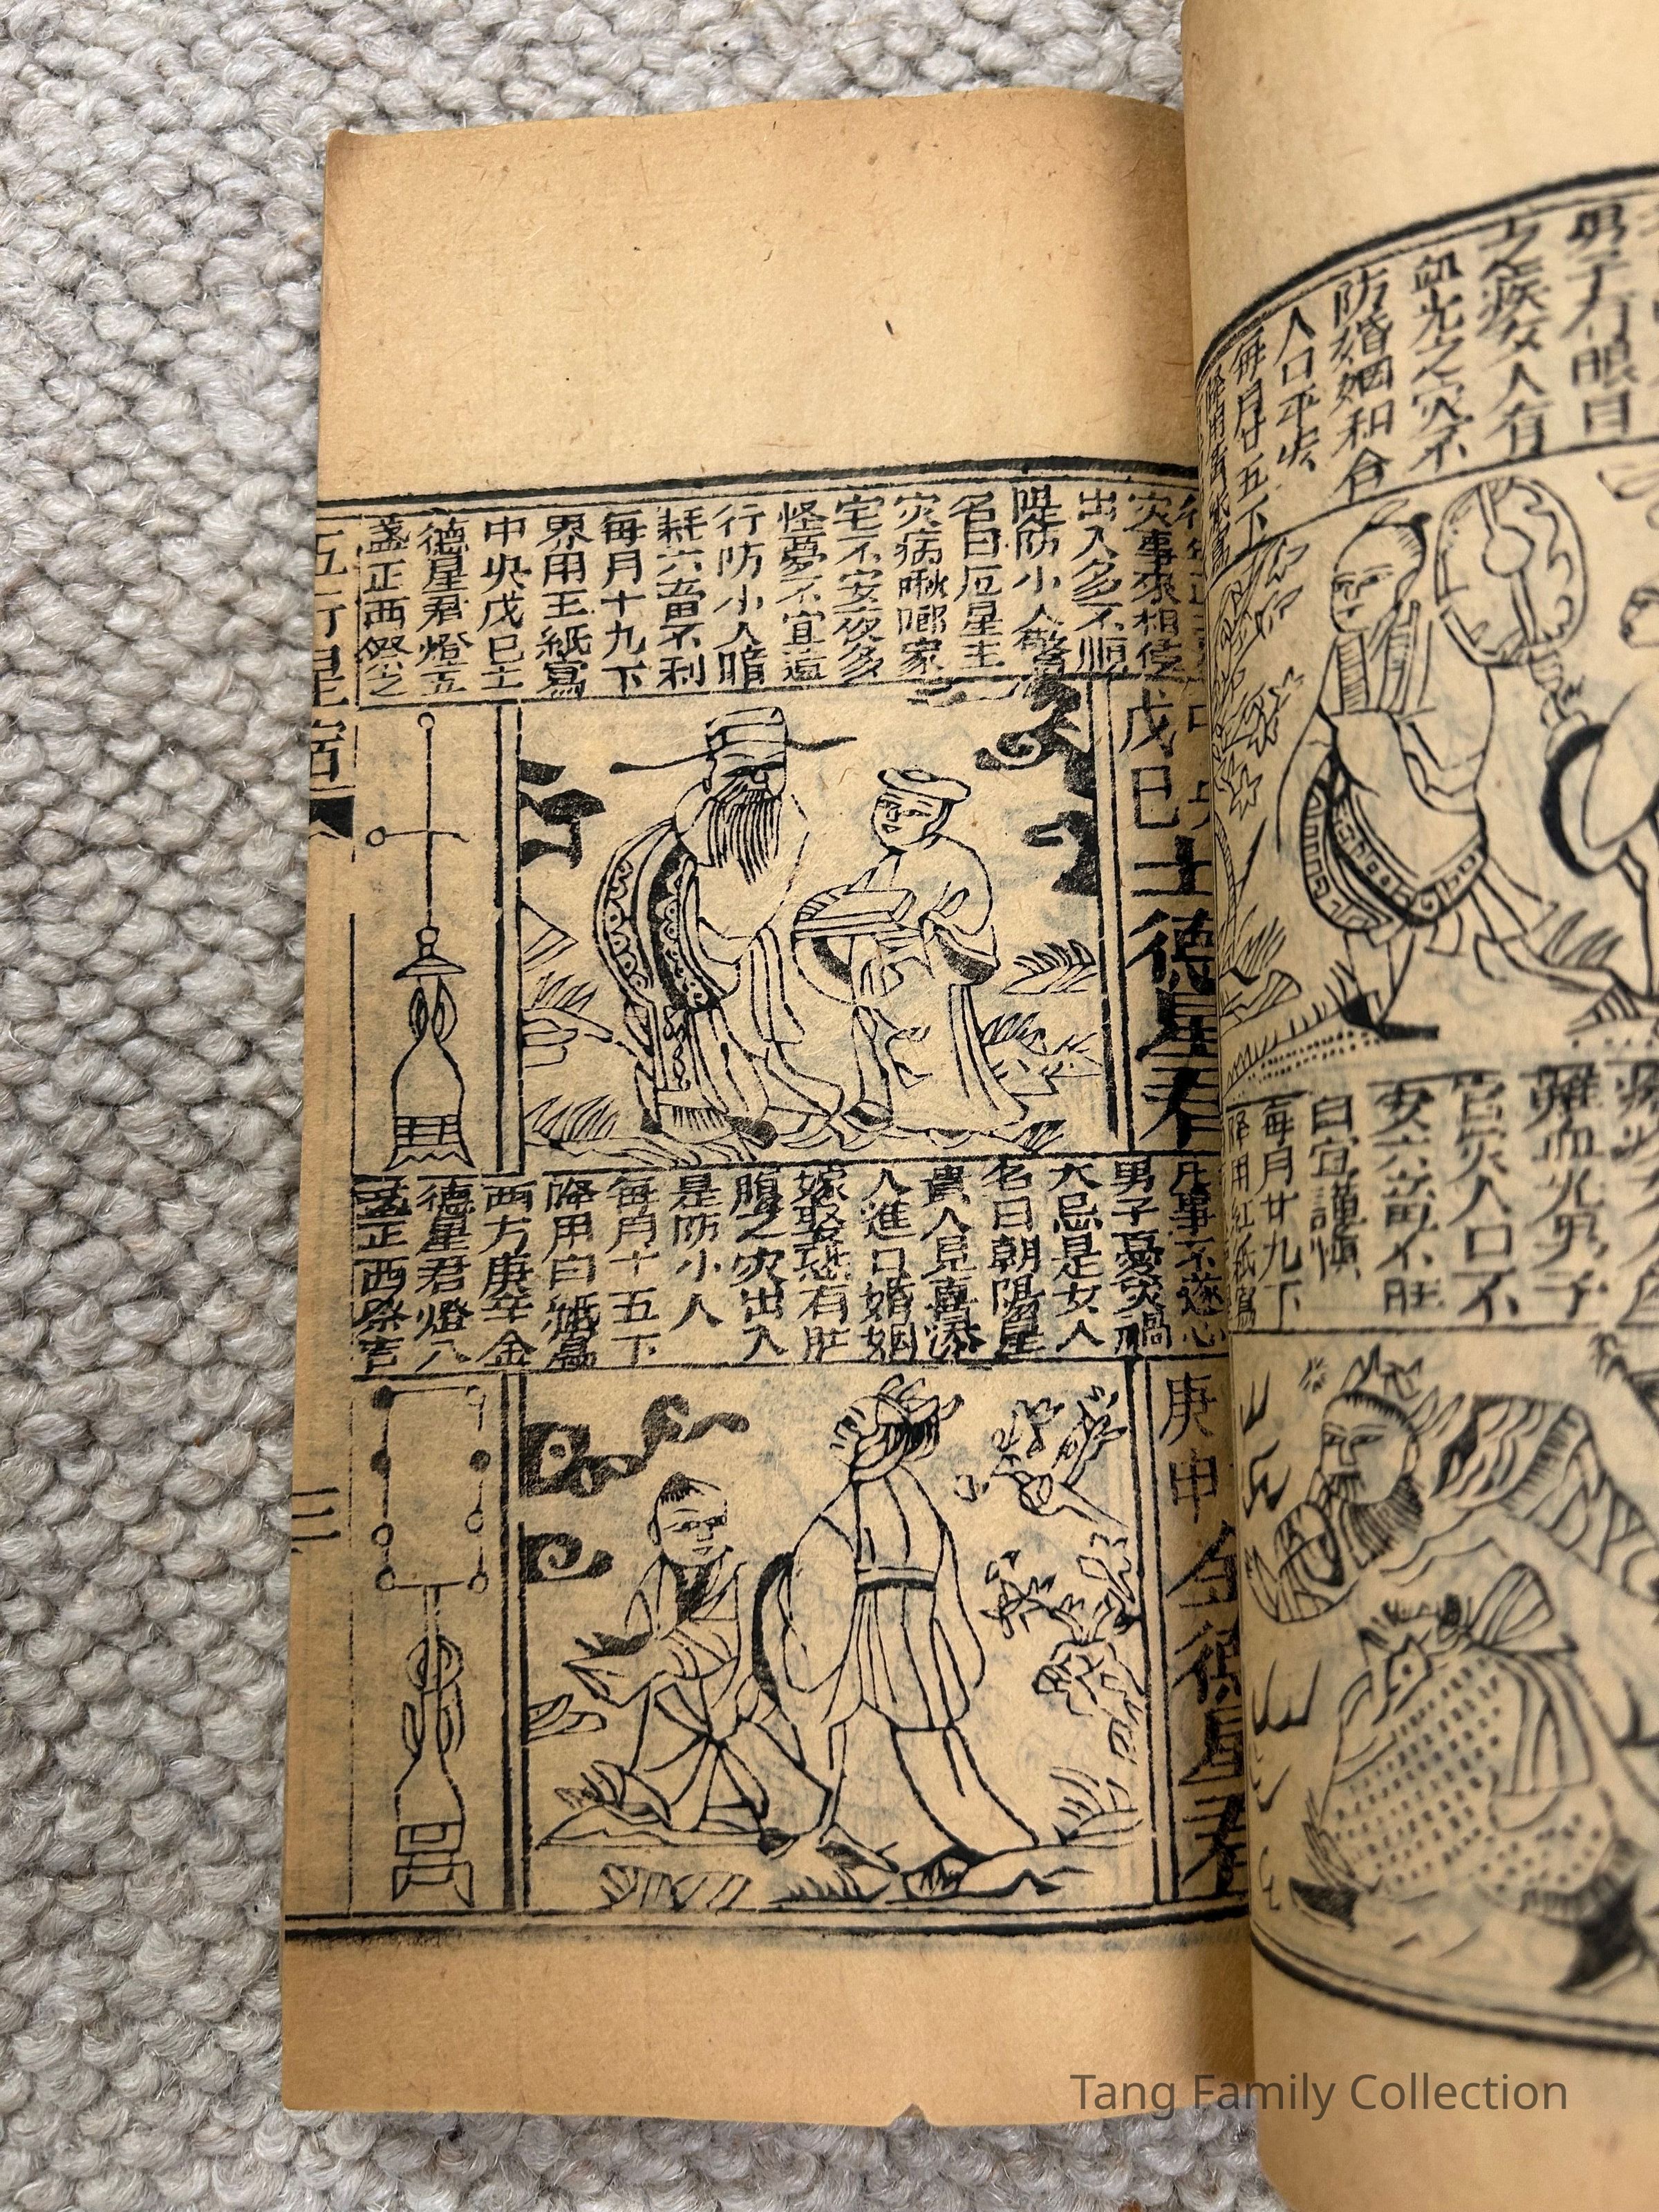 男子有眼目
之疾女人有
血光之灾不
防婚姻和合
人口平安
每月廿五下
官灾人口不
安六畜不旺
自宜謹慎
每月廿九下
降用紅紙寫
灾事來相侵
出入多不順
陞防小人驚
名曰厄星主
灾病啾唧家
宅不安夜多
怪夢不宜遠
行防小人暗
耗六畜不利
每月十九下
界用王紙寫
中央戊己土
德星君燈五
盞正西祭之
戊己土德星君
凡事不遂心
男子憂灾禍
大忌是女人
名曰朝陽星
貴人見喜添
人進口婚姻
嫁娶恐有肚
腹之灾出入
是防小人
每月十五下
降用白紙寫
西方庚辛金
德星君燈八
盞正西祭吉
庚申金德星君
五行星宿
三
Tang Family Collection